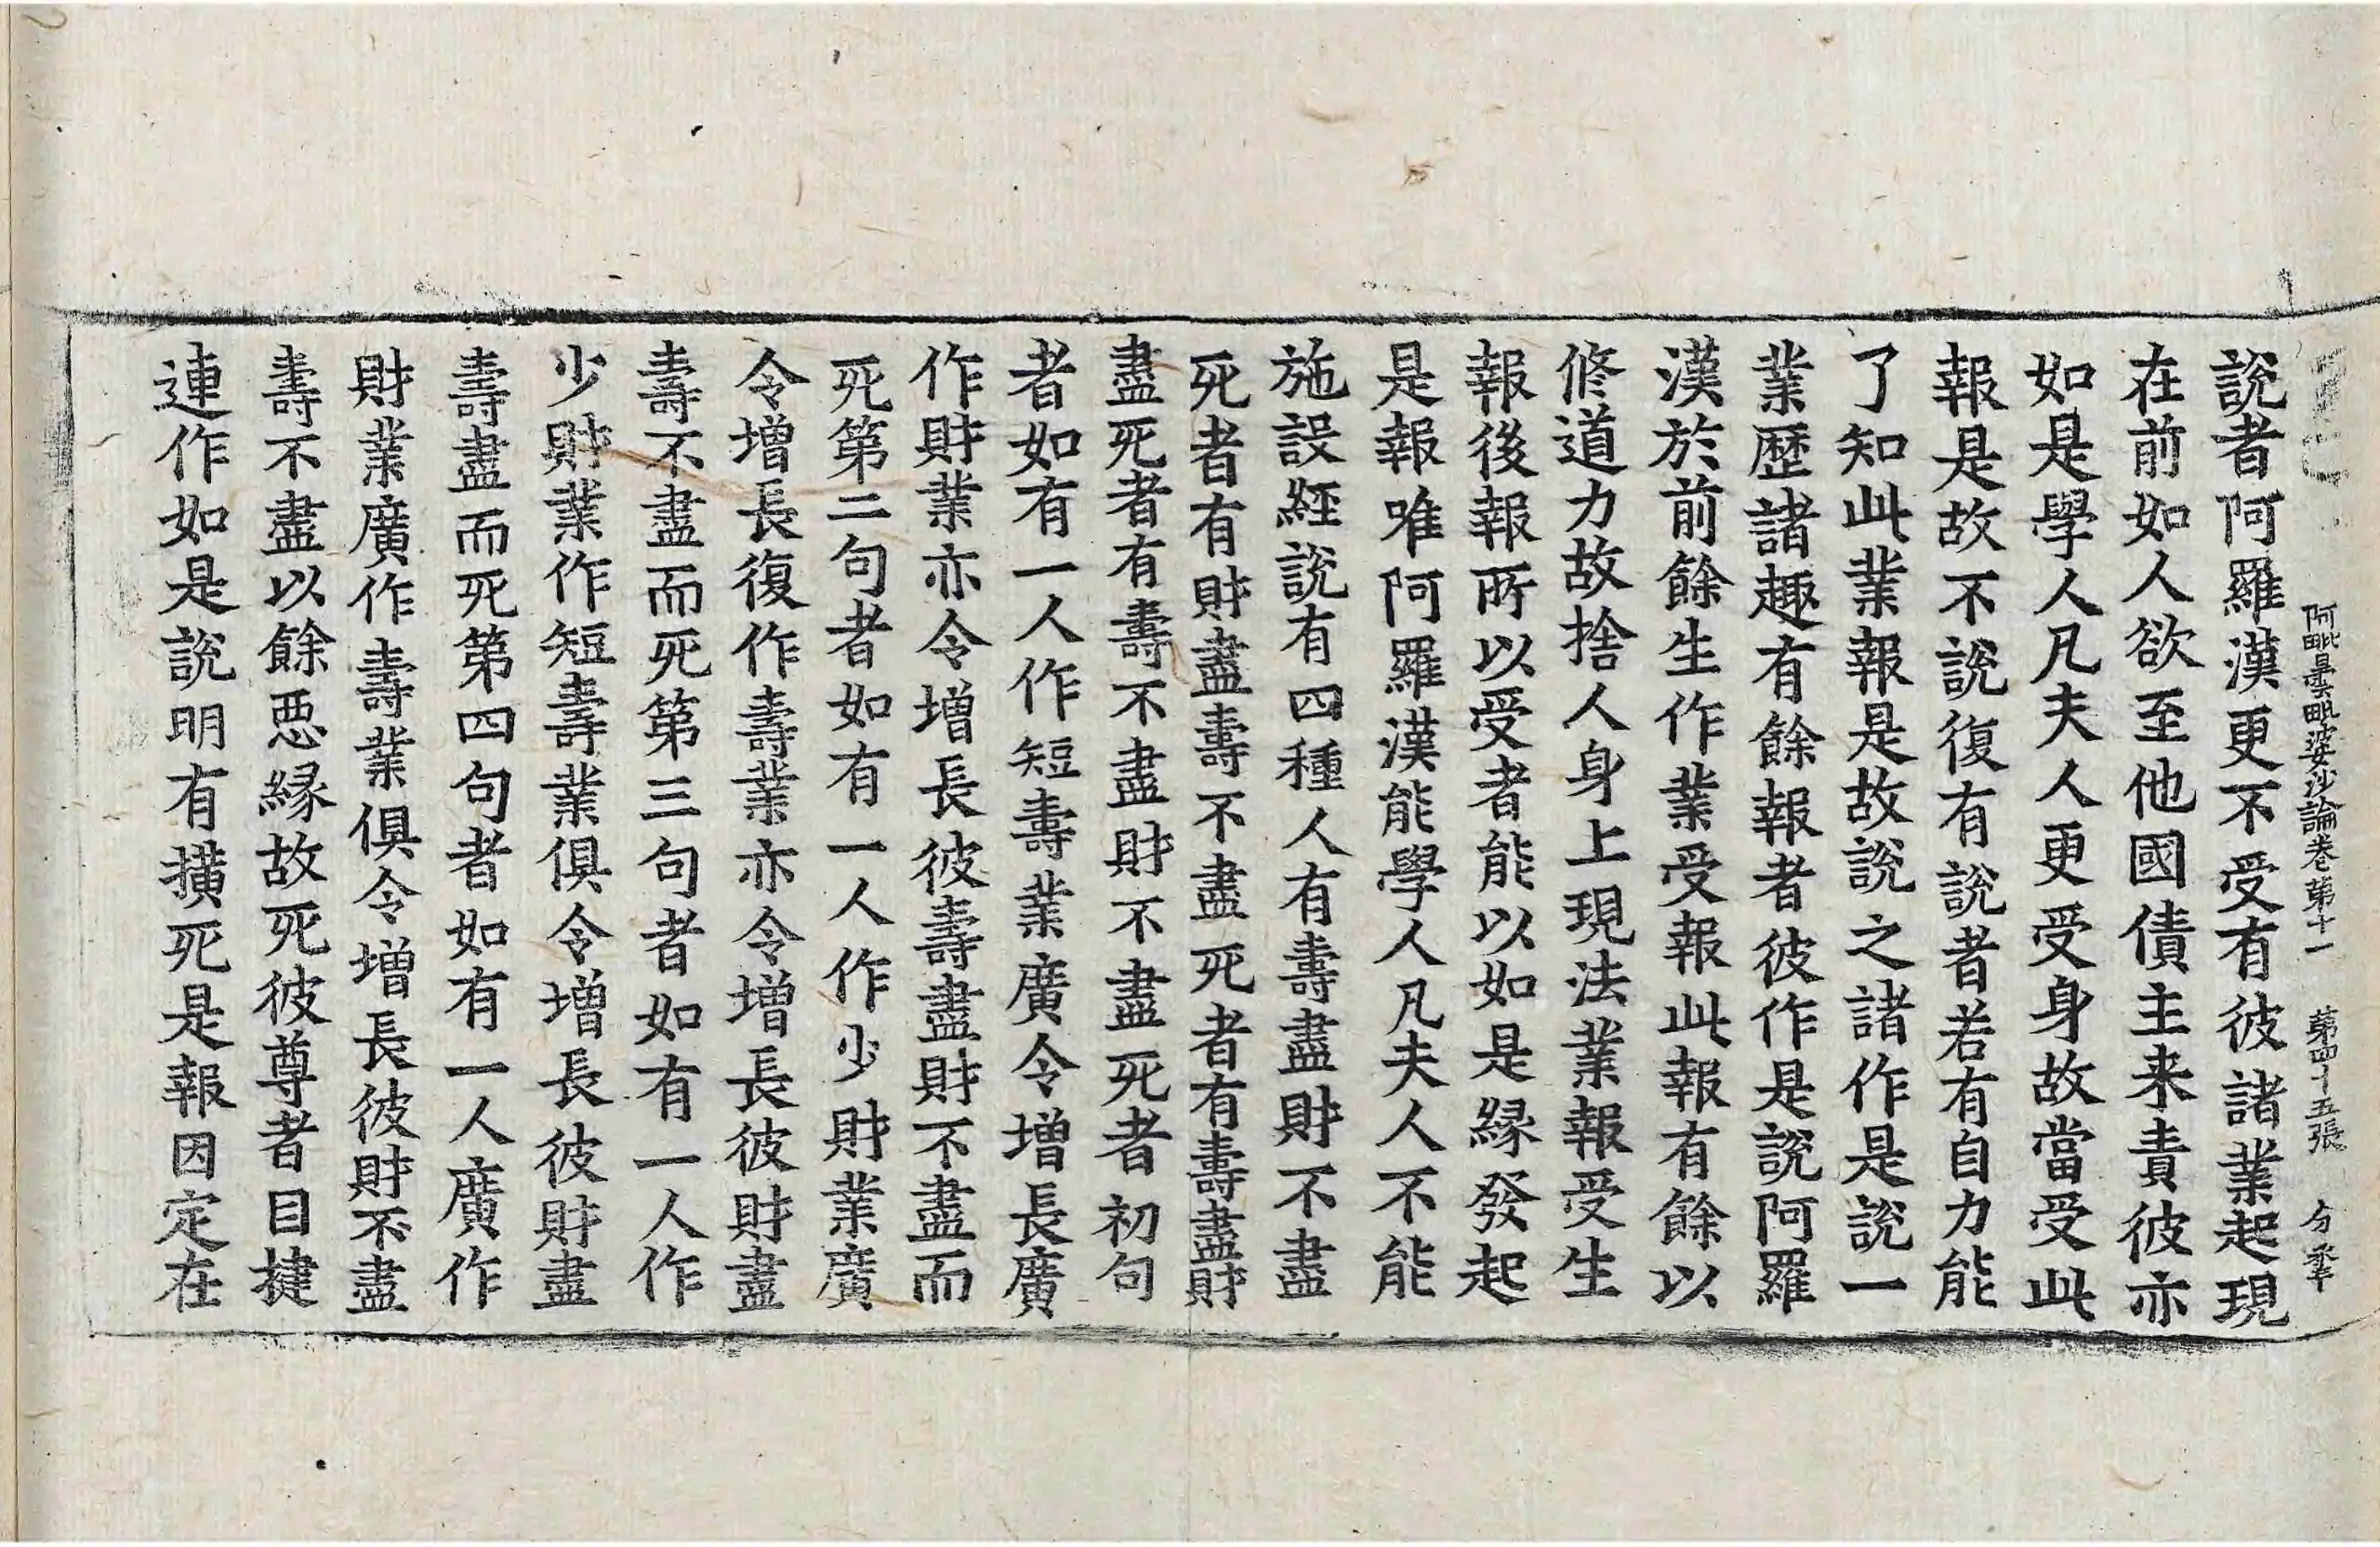 阿毗曇毗婆沙論卷第十一 第四十五張 分
說者阿羅漢更不受有彼諸業起現
在前如人欲至他國債主来責彼亦
如是學人凡夫人更受身故當受此
報是故不說復有說者若有自力能
了知此業報是故說之諸作是說一
業歷諸趣有餘報者彼作是說阿羅
漢於前餘生作業受報此報有餘以
修道力故捨人身上現法業報受生
報後報所以受者能以如是緣發起
是報唯阿羅漢能學人凡夫人不能
施設經說有四種人有壽盡財不盡
死者有財盡壽不盡死者有壽盡財
盡死者有壽不盡財不盡死者初句
者如有一人作短壽業廣令增長廣
作財業亦令增長彼壽盡財不盡而
死第二句者如有一人作少財業廣
令增長復作壽業亦令增長彼財盡
壽不盡而死第三句者如有一人作
少財業作短壽業俱令增長彼財盡
壽盡而死第四句者如有一人廣作
財業廣作壽業俱令增長彼財不盡
壽不盡以餘惡緣故死彼尊者目揵
連作如是說明有撗死是報因定在